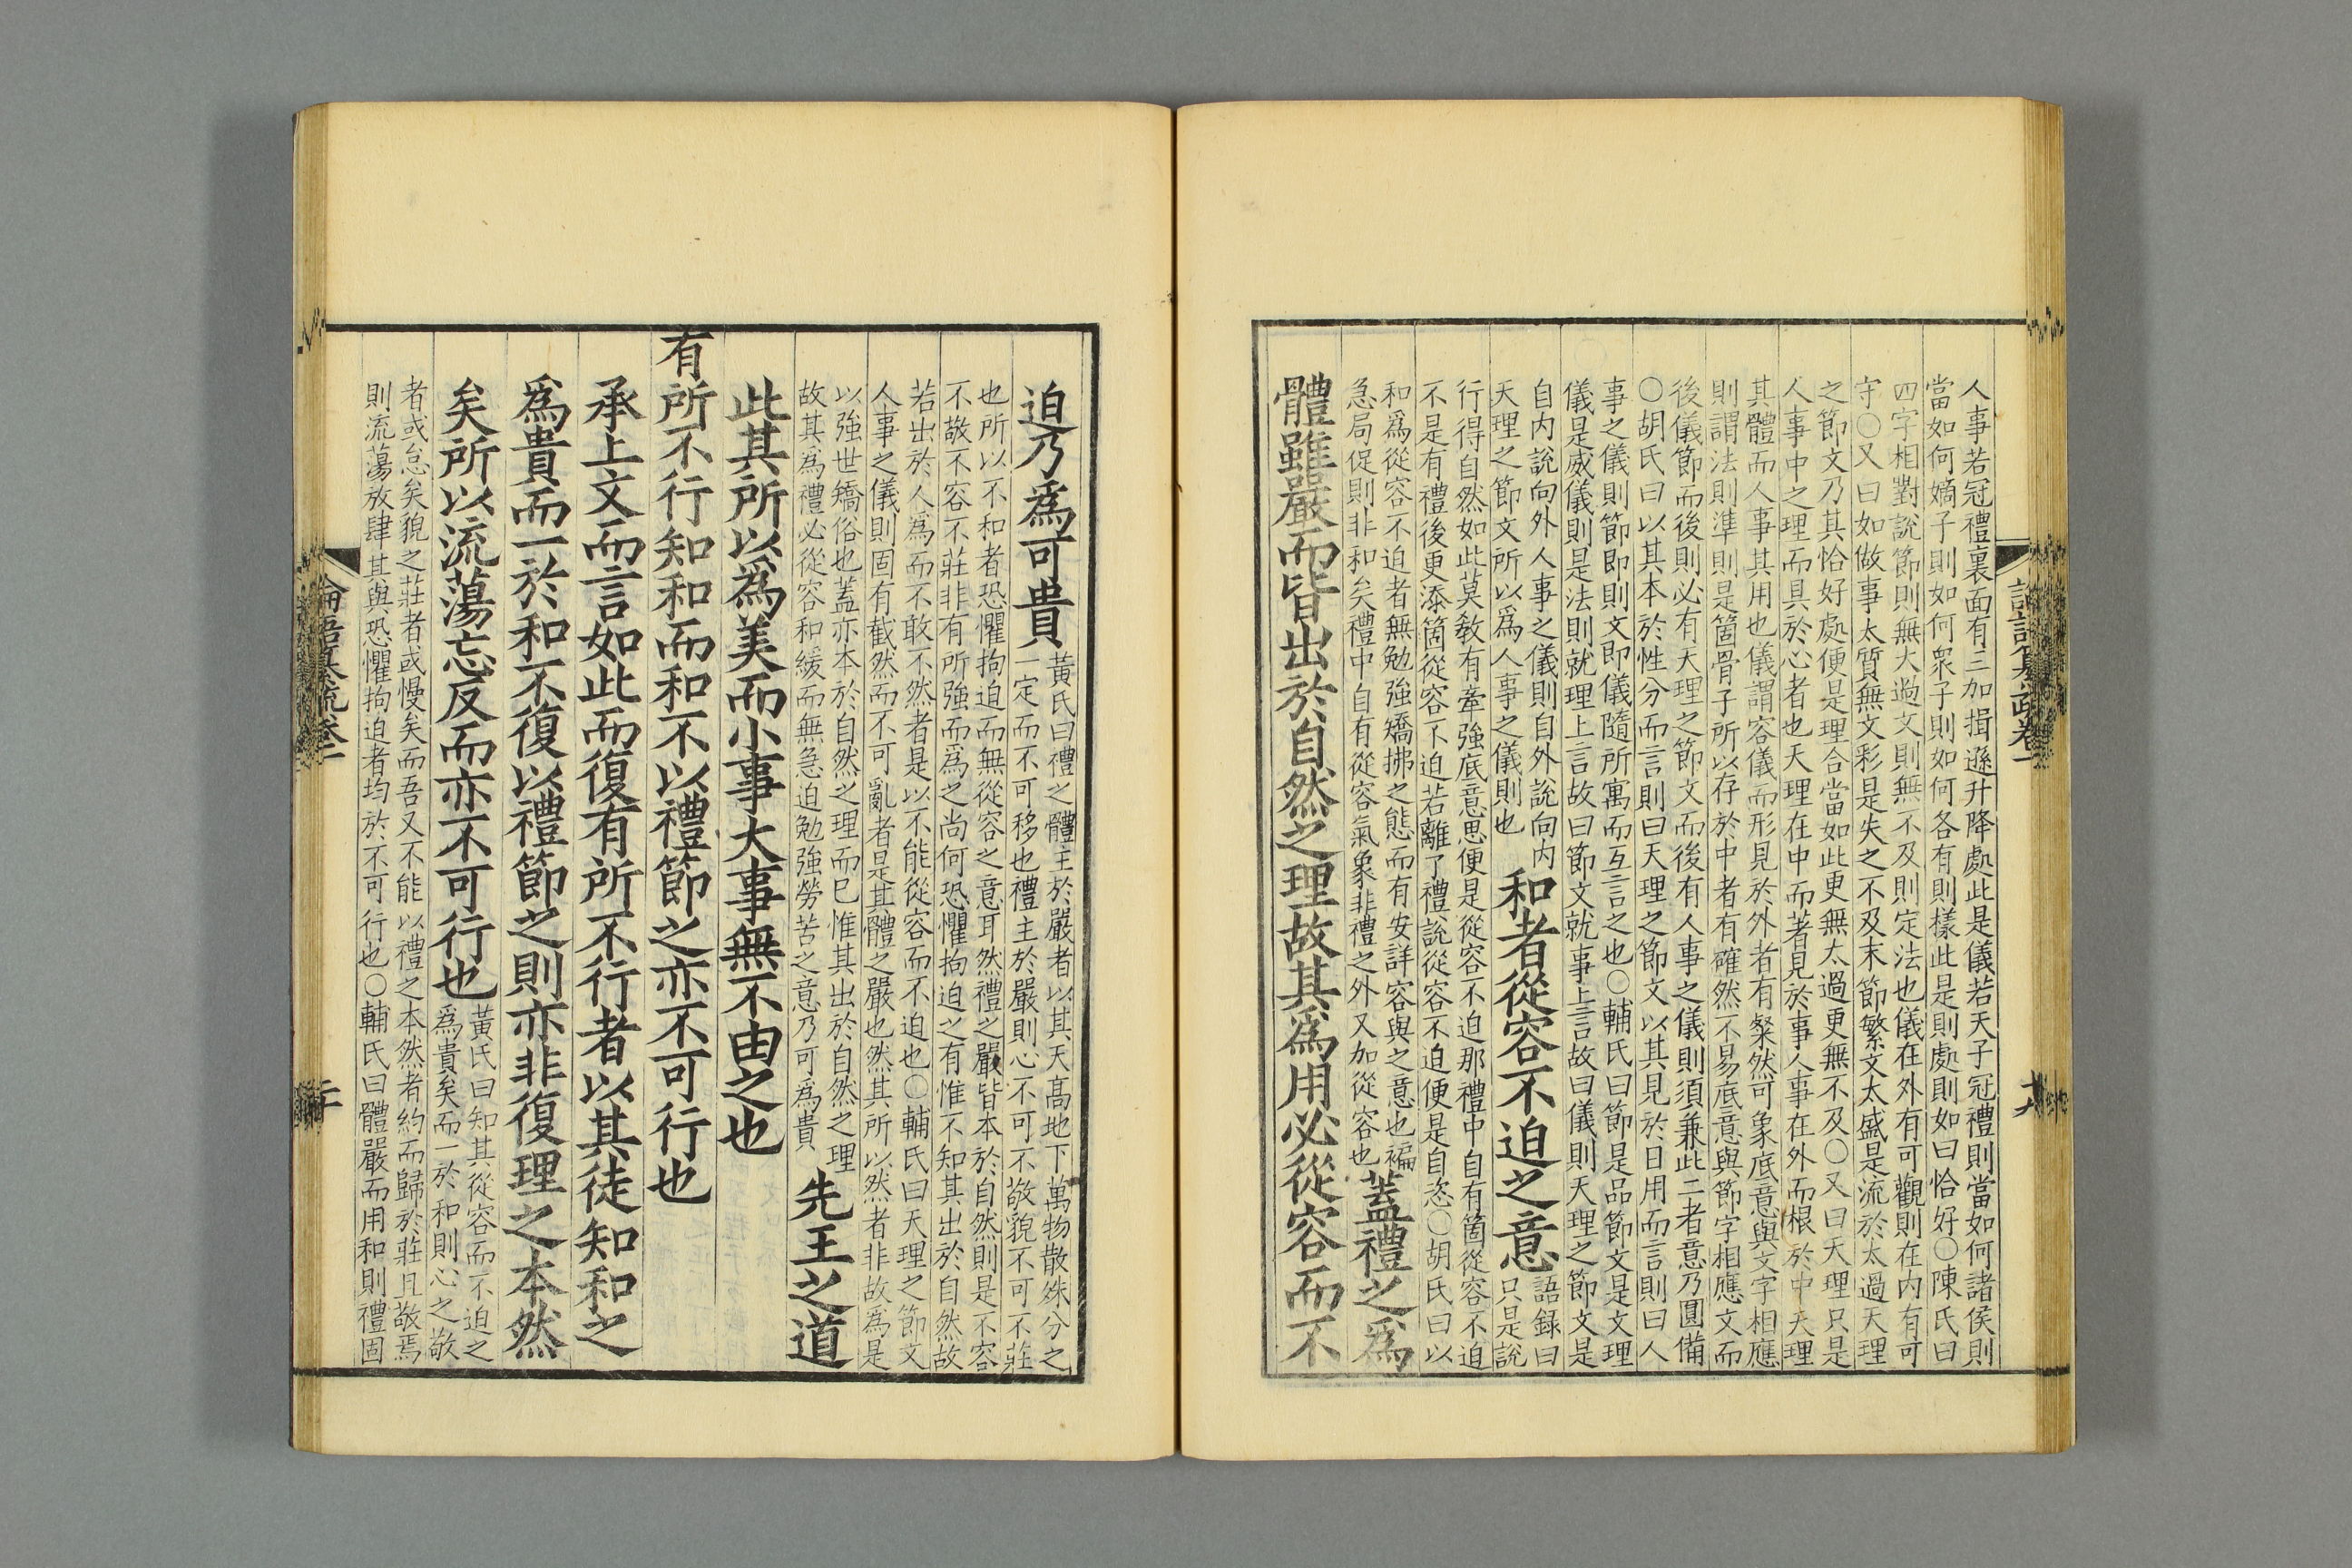 人事若冠禮裏面有三加揖遜升降處此是儀若天子冠禮則當如何諸侯則
當如何嫡子則如何衆子則如何各有則樣此是則處則如曰恰好○陳氏曰
四字相對說節則無大過文則無不及則定法也儀在外有可觀則在内有可
守○又曰如做事太質無文彩是失之不及末節繁文太盛是流於太過天理
之節文乃其恰好處便是理合當如此更無太過更無不及○又曰天理只是
人事中之理而具於心者也天理在中而著見於事人事在外而根於中天理
其體而人事其用也儀謂容儀而形見於外者有粲然可象底意與文字相應
則謂法則準則是箇骨子所以存於中者有確然不易底意與節字相應文而
後儀節而後則必有天理之節文而後有人事之儀則須兼此二者意乃圓備
○胡氏曰以其本於性分而言則曰天理之節文以其見於日用而言則曰人
事之儀則節即則文即儀隨所寓而互言之也○輔氏曰節是品節文是文理
儀是威儀則是法則就理上言故曰節文就事上言故曰儀則天理之節文是
自内說向外人事之儀則自外說向内
天理之節文所以爲人事之儀則也
和者從容不迫之意
語録曰
只是說
行得自然如此莫敎有牽強底意思便是從容不迫那禮中自有箇從容不迫
不是有禮後更添箇從容不迫若離了禮說從容不迫便是自恣○胡氏曰以
和爲從容不迫者無勉強矯拂之態而有安詳容與之意也褊
急局促則非和矣禮中自有從容氣象非禮之外又加從容也
蓋禮之爲
體雖嚴而皆出於自然之理故其爲用必從容而不
迫乃爲可貴
黃氏曰禮之體主於嚴者以其天高地下萬物散殊分之
一定而不可移也禮主於嚴則心不可不敬貌不可不莊
也所以不和者恐懼拘迫而無從容之意耳然禮之嚴皆本於自然則是不容
不敬不容不莊非有所強而爲之尚何恐懼拘迫之有惟不知其出於自然故
若出於人爲而不敢不然者是以不能從容而不迫也○輔氏曰天理之節文
人事之儀則固有截然而不可亂者是其體之嚴也然其所以然者非故爲是
以強世矯俗也蓋亦本於自然之理而已惟其出於自然之理
故其爲禮必從容和緩而無急迫勉強勞苦之意乃可爲貴
先王之道
此其所以爲美而小事大事無不由之也
有所不行知和而和不以禮節之亦不可行也
承上文而言如此而復有所不行者以其徒知和之
爲貴而一於和不復以禮節之則亦非復理之本然
矣所以流蕩忘反而亦不可行也
黃氏曰知其從容而不迫之
爲貴矣而一於和則心之敬
者或怠矣貌之莊者或慢矣而吾又不能以禮之本然者約而歸於莊且敬焉
則流蕩放肆其與恐懼拘迫者均於不可行也○輔氏曰體嚴而用和則禮固
論語纂疏卷一
二十